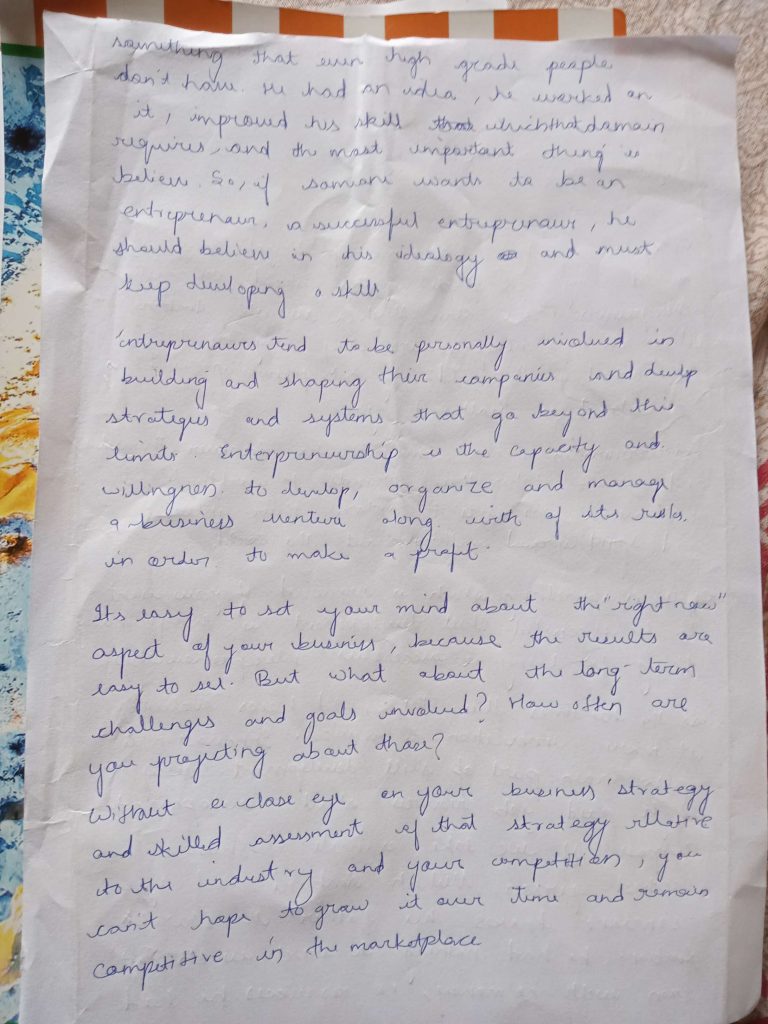 something that even high grade people
don't have. He had an idea, he worked on
it, improved his skill which that domain
requires, and the most important thing is
believe. So, if someone wants to be an
entrepreneur, a successful entrepreneur, he
should believe in his idealogy and must
keep developing a skill.
Entrepreneurs tend to be personally involved in
building and shaping their companies and develop
strategies and systems that go beyond this
limits. Enterpreneurship is the capacity and
willingness to develop, organize and manage
a business venture along with of its risks.
in order to make a profit.
Its easy to set your mind about the "right now"
aspect of your business, because the results are
easy to see. But what about the long-term
challenges and goals involved? How often are
you projecting about those?
Without a close eye on your business strategy
and skilled assessment of that strategy rellative
to the industry and your competition, you
can't hope to grow it over time and remain
competitive in the marketplace